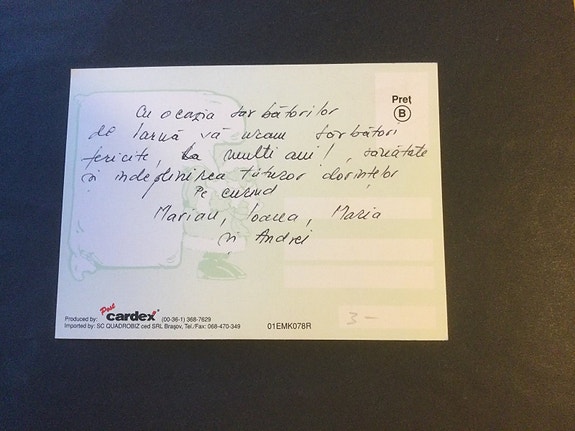 Cu ocazia sărbătorilor
de Iarnă vă urăm sărbători
fericite, La mulți ani!, sănătate
și îndeplinirea tuturor dorințelor
Pe curînd
Marian, Ioana, Maria
și Andrei
Preț
B
Produced by: Post cardex (00-36-1) 368-7629
Imported by: SC QUADROBIZ ced SRL Brașov, Tel./Fax: 068-470-349
01EMK078R
3 -